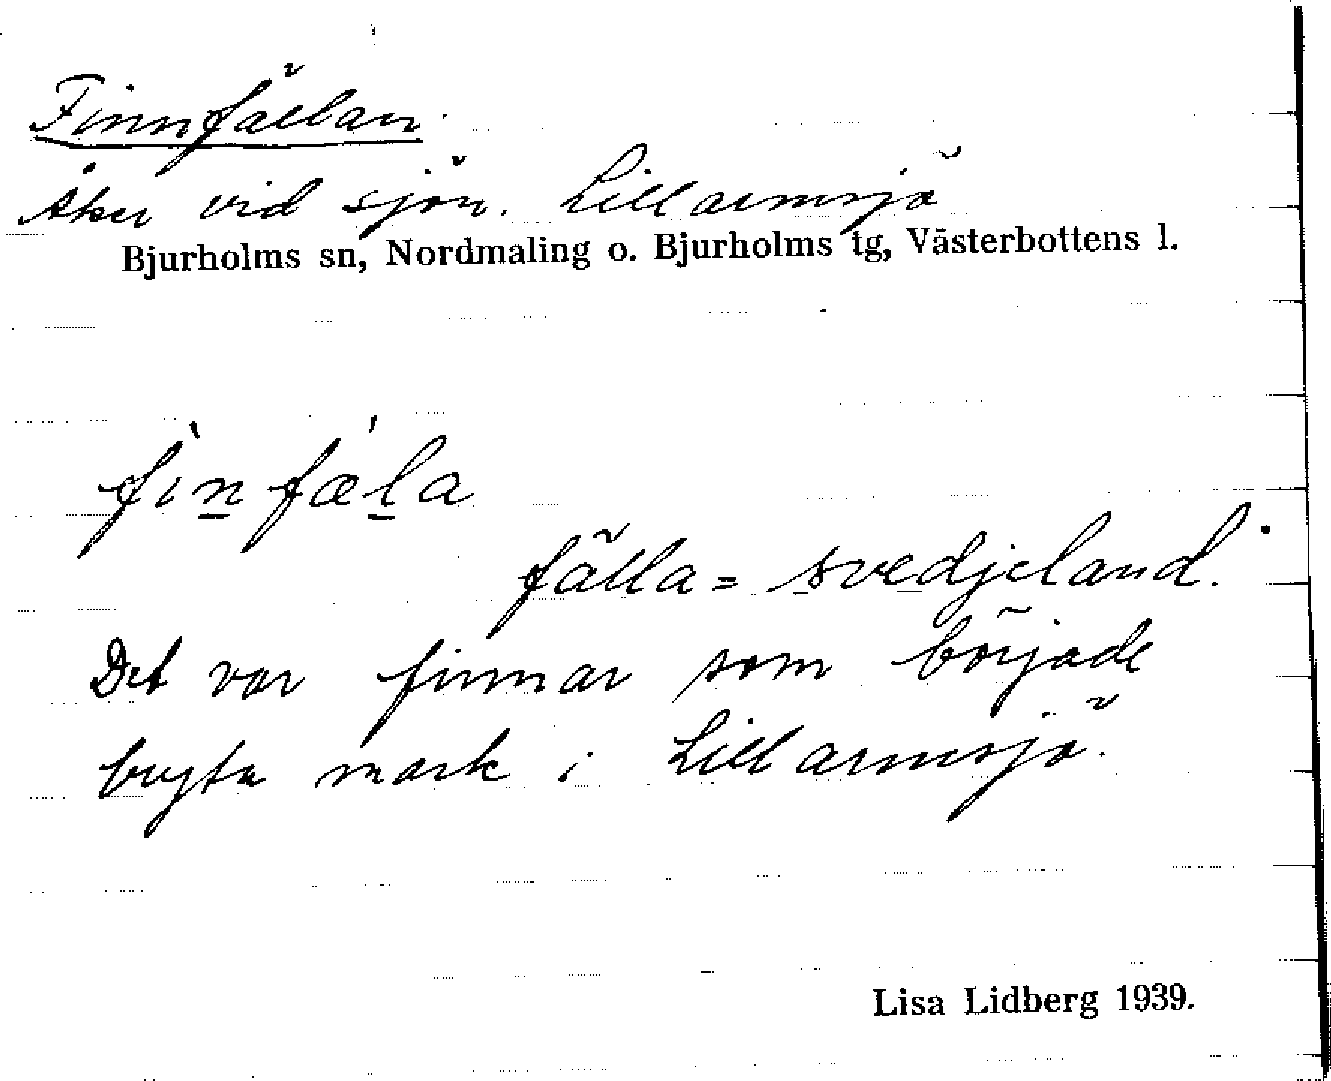 Finnfällan
Åker vid sjön. Lillarmsjö
Bjurholms sn, Nordmaling o. Bjurholms tg, Västerbottens l.
fìn̲fǽl̲a
fälla = svedjeland.
Det var finnar som började
bryta mark i Lillarmsjö.
Lisa Lidberg 1939.